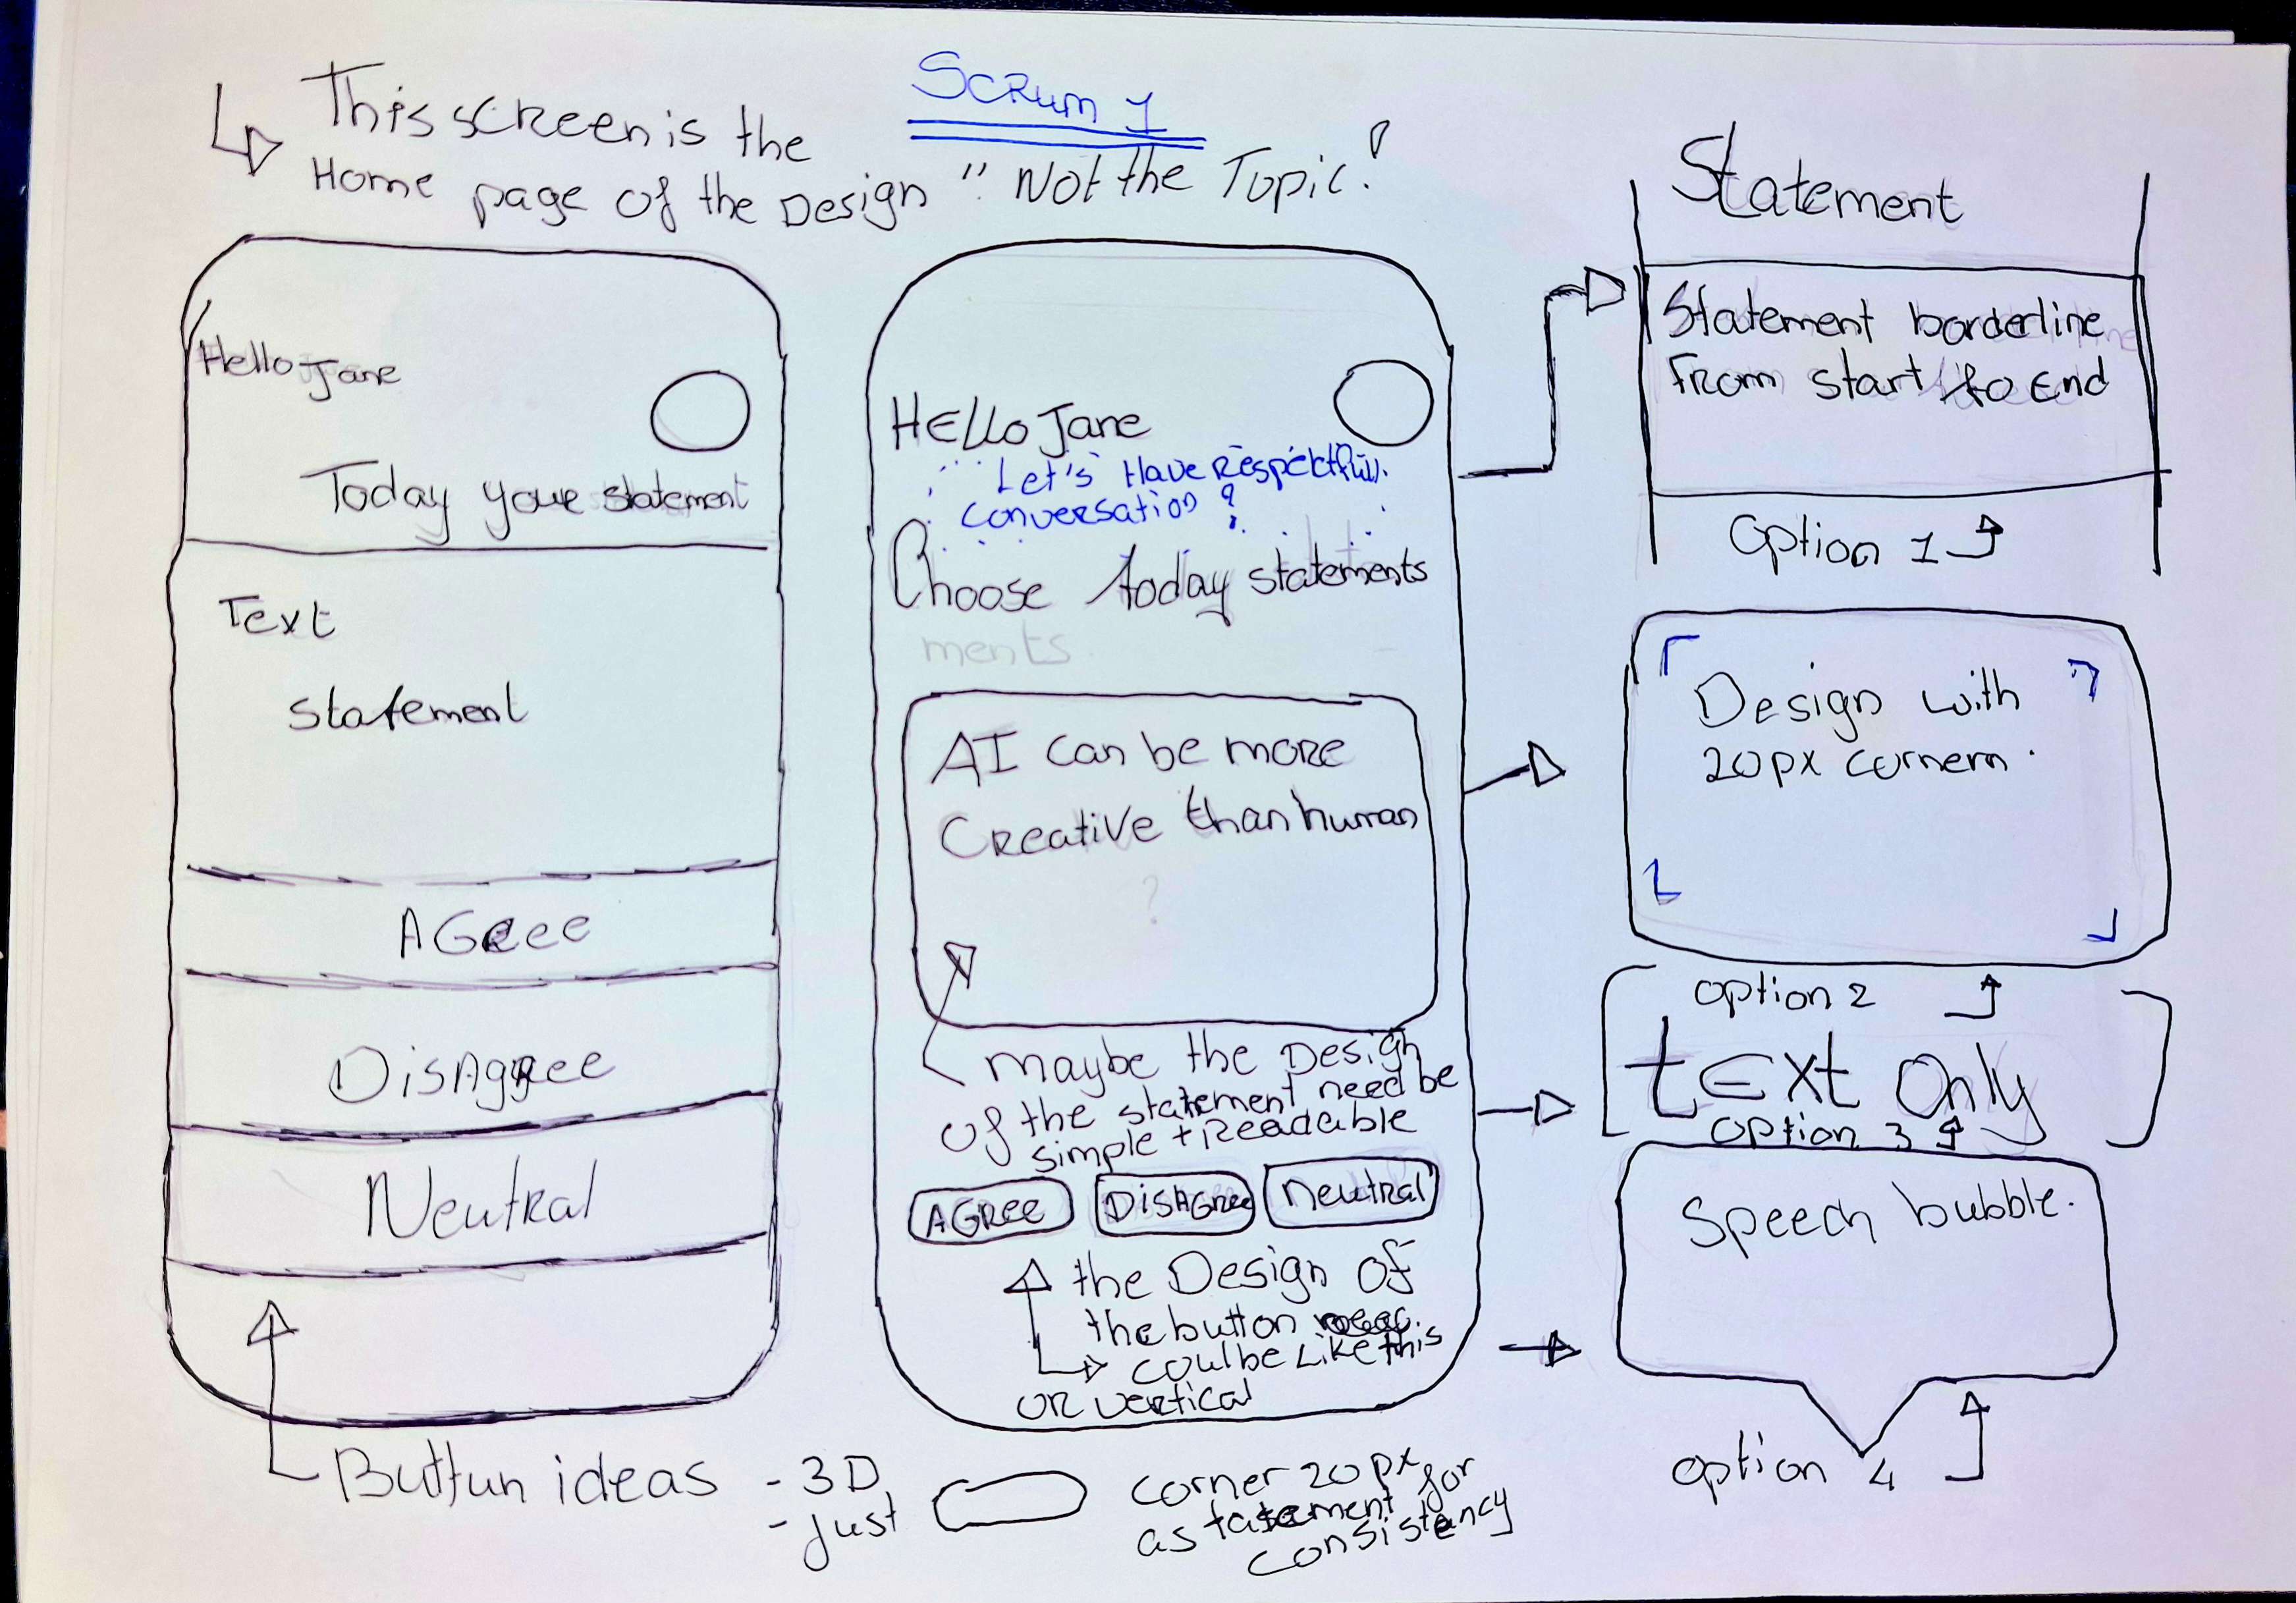 Scrum 1
This screen is the
Home page of the Design "Not the Topic!
Hello Jane
Today your statement
Text
statement
AGree
DisAgree
Neutral
Button ideas - 3D
- just
corner 20px
as tatement for
consistency
HELLo Jane
Let's Have Respektfull
conversation?
Choose today statements
ments
AI can be more
Creative than human
?
maybe the Design
of the statement need be
simple + Readable
AGree
DisAgree
Neutral
the Design of
the button
coul be Like this
or vertical
Statement
Statement borderline
From start to End
Option 1
Design with
20px cornern.
option 2
tExt Only
option 3
Speech bubble.
option 4